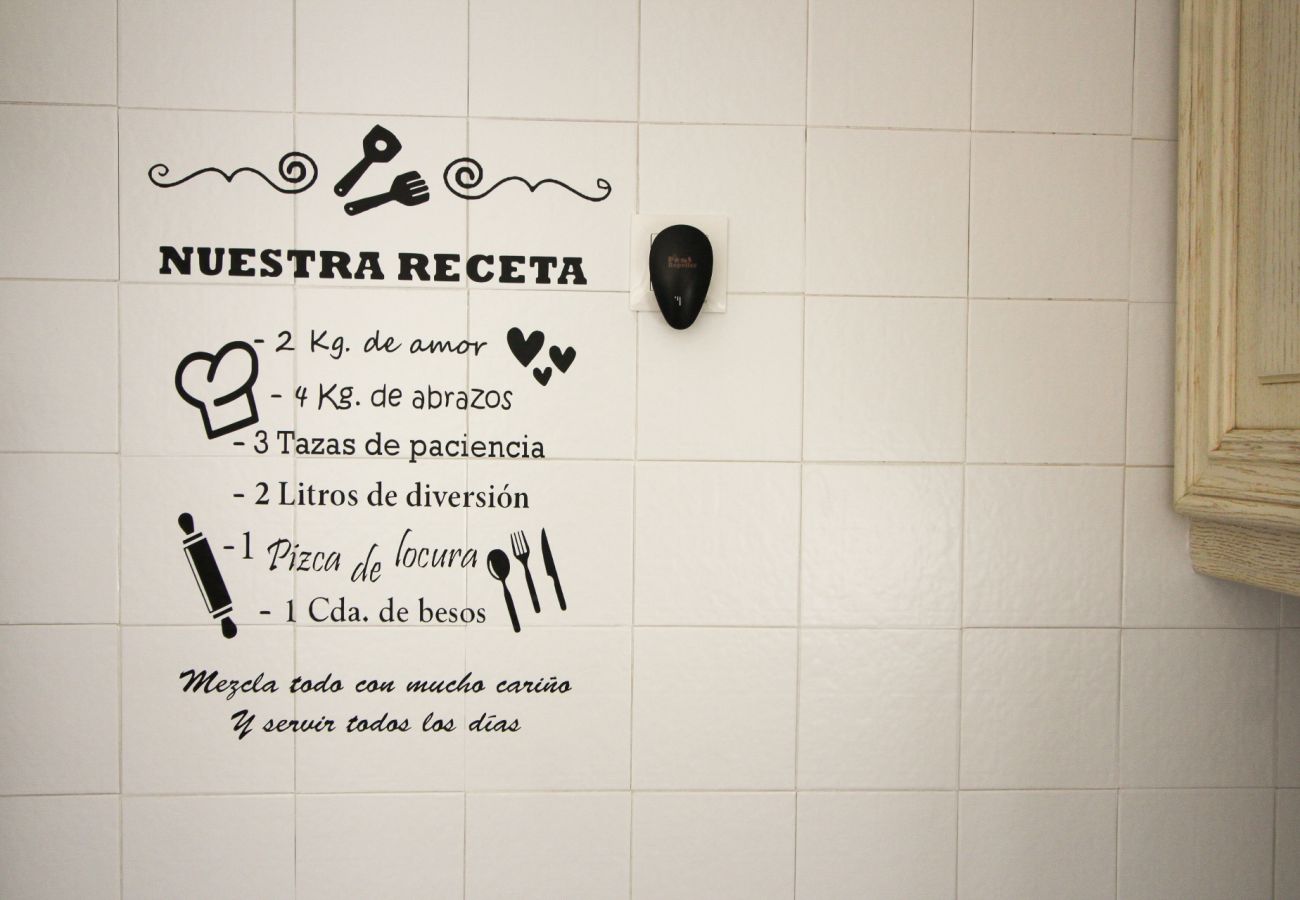 NUESTRA RECETA
- 2 Kg. de amor
- 4 Kg. de abrazos
- 3 Tazas de paciencia
- 2 Litros de diversión
-1 Pizca de locura
- 1 Cda. de besos
Mezcla todo con mucho cariño
Y servir todos los días
Pest
Repeller